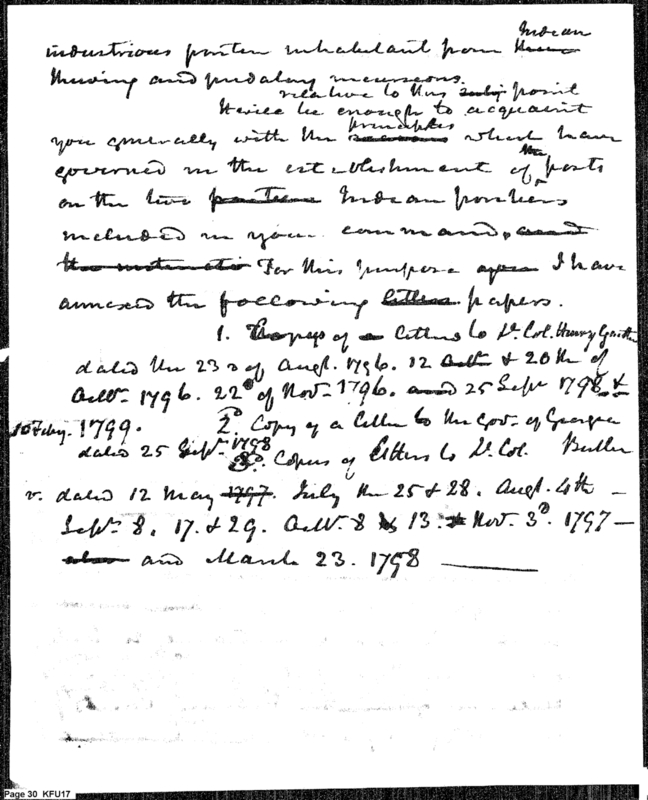 Indean
industrious frontier inhabitant from
theiving and predatory incursions.
relative to this point
It will be enough to acquaint
principles
you generally with the which have
governed in the establishment of the posts
on the two Indean frontiers
included in your command,
For this purpose I have
annexed the following papers.
1. Copys of letters to Lt. Col. Henry Gaither
dated the 23d of Augt. 1796. 12 & 20th of
Octbr. 1796. 22d of Novr. 1796. 25 Sepr 1798 &
10 Feby. 1799. 2d. Copy of a letter to the Govr. of Georgia
dated 25 Sepr. 1798
3d. Copies of letters to Lt. Col. Butler
v. dated 12 May 1797. July the 25 & 28. Augt. 4th –
Sepr. 8. 17. & 29. Octbr. 8 13. Nov. 3d. 1797 –
and March 23. 1798
Page 30 KFU17